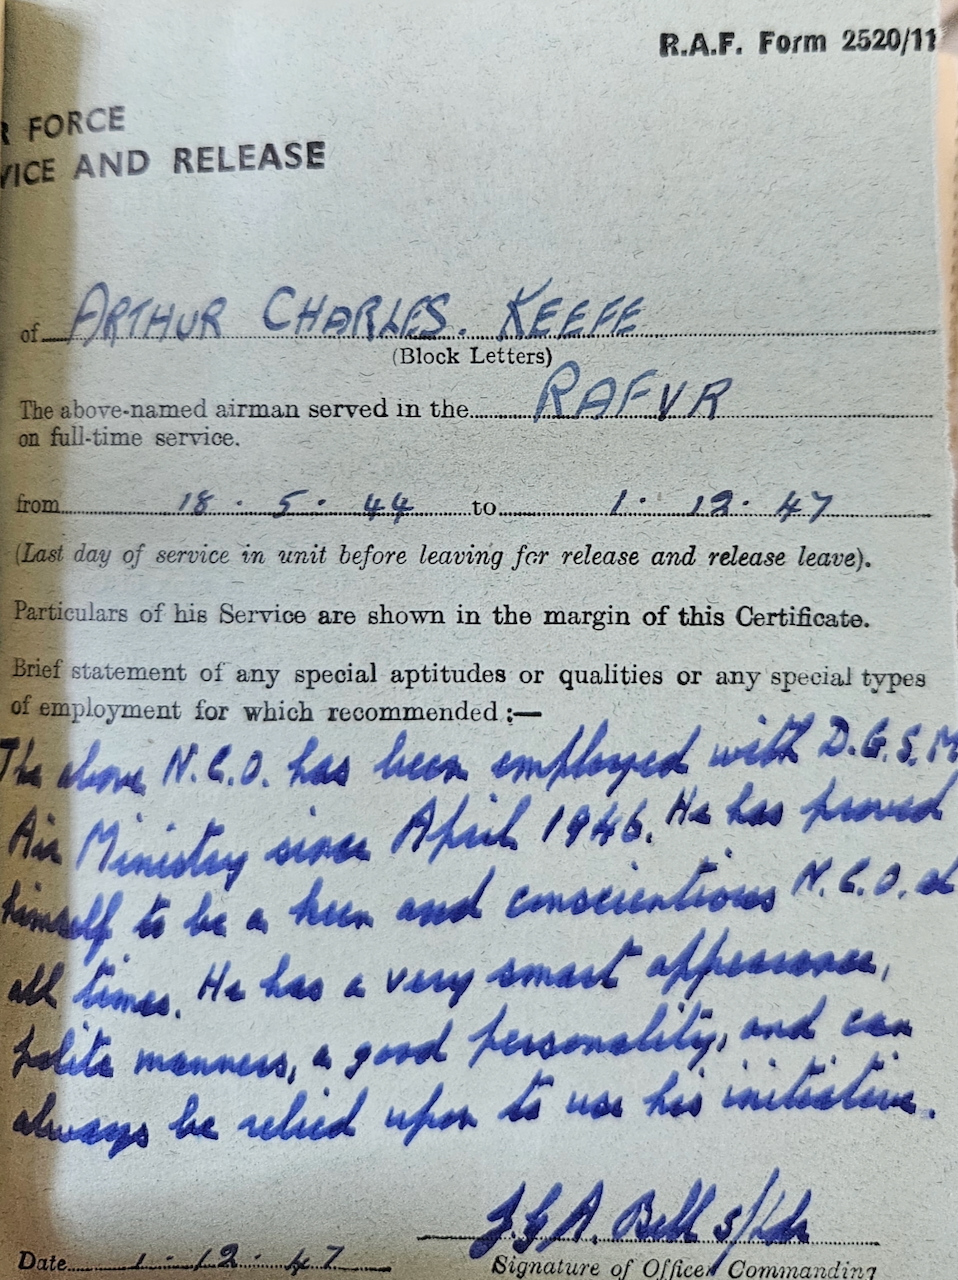 R.A.F. Form 2520/11
R FORCE
VICE AND RELEASE
of ARTHUR CHARLES. KEEFE
(Block Letters)
The above-named airman served in the RAFVR
on full-time service.
from 18 . 5 . 44 to 1 . 12 . 47
(Last day of service in unit before leaving for release and release leave).
Particulars of his Service are shown in the margin of this Certificate.
Brief statement of any special aptitudes or qualities or any special types
of employment for which recommended :—
The above N.C.O. has been employed with D.G.S.M
Air Ministry since April 1946. He has proved
himself to be a keen and conscientious N.C.O. at
all times. He has a very smart appearance,
polite manners, a good personality, and can
always be relied upon to use his initiative.
Bell S/Ldr
Date 1 . 12 . 47 Signature of Officer Commanding